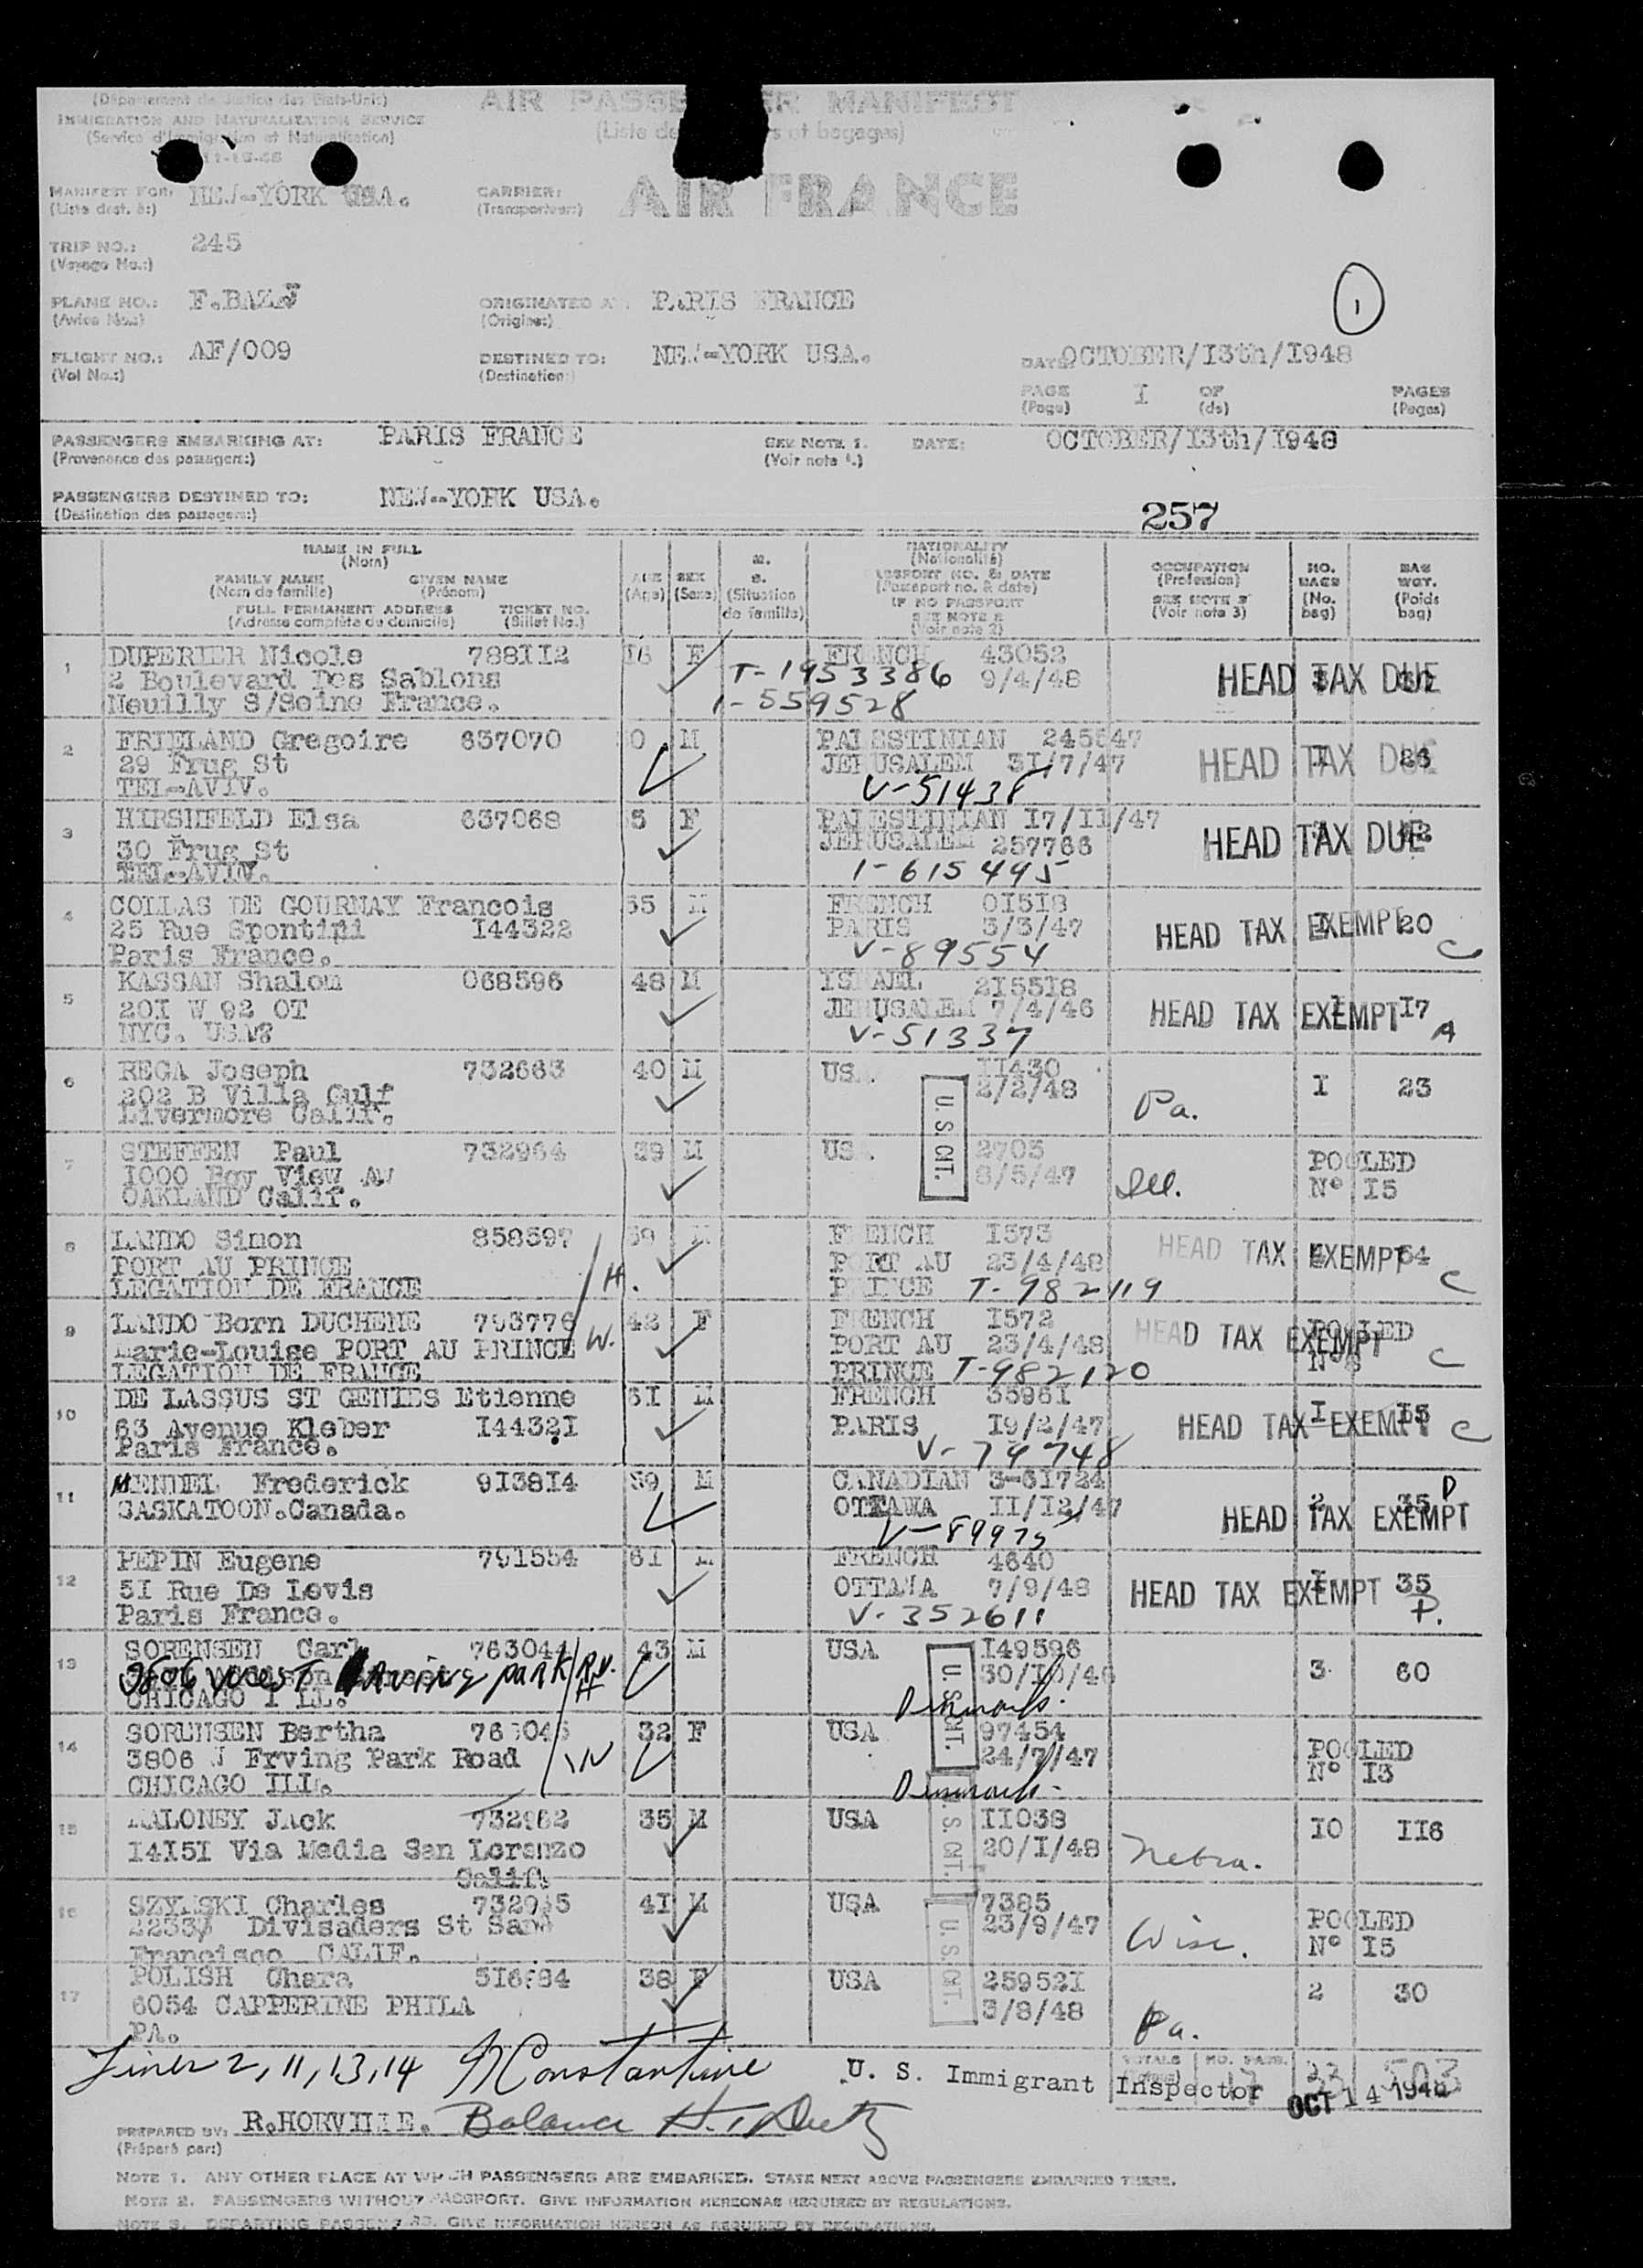 (Département de Justice des Etats-Unis)
IMMIGRATION AND NATURALIZATION SERVICE
(Service d'Immigration et Naturalisation)
11-15-46
AIR PASSE ER MANIFEST
(Liste de s et bagages)
MANIFEST FOR: NEW-YORK USA.
(Liste dest. à:)
CARRIER: AIR FRANCE
(Transporteur:)
TRIP NO.: 245
(Voyage No.:)
PLANE NO.: F.BAZJ
(Avion No.:)
ORIGINATED AT: PARIS FRANCE
(Origine:)
1
FLIGHT NO.: AF/009
(Vol No.:)
DESTINED TO: NEW-YORK USA.
(Destination:)
DATE: OCTOBER/I3th/I948
PAGE I OF PAGES
(Page) (de) (Pages)
PASSENGERS EMBARKING AT: PARIS FRANCE
(Provenance des passagers:)
SEE NOTE 1. DATE: OCTOBER/I3th/I948
(Voir note 1.)
PASSENGERS DESTINED TO: NEW-YORK USA.
(Destination des passagers:)
257
NAME IN FULL
(Nom)
FAMILY NAME GIVEN NAME
(Nom de famille) (Prénom)
FULL PERMANENT ADDRESS TICKET NO.
(Adresse complète de domicile) (Billet No.)
AGE
(Age)
SEX
(Sexe)
M.
S.
(Situation
de famille)
NATIONALITY
(Nationalité)
PASSPORT NO. & DATE
(Passeport no. & date)
IF NO PASSPORT
SEE NOTE 2
(Voir note 2)
OCCUPATION
(Profession)
SEE NOTE 3
(Voir note 3)
NO.
BAGS
(No.
bag)
BAG
WGT.
(Poids
bag)
1 DUPERIER Nicole 788II2 I6 F FRENCH 43052
2 Boulevard Des Sablons T-1953386 9/4/48 HEAD TAX DUE
Neuilly S/Seine France. 1-559528
2 FRIELAND Gregoire 637070 M PALESTINIAN
29 Frug St JERUSALEM 3I/7/47 HEAD TAX DUE
TEL-AVIV. V-51438
3 HIRSHFELD Elsa 637068 5 F PALESTINIAN I7/II/47
30 Frug St JERUSALEM 257766 HEAD TAX DUE
TEL-AVIV. 1-615495
4 COLLAS DE GOURNAY Francois 65 M FRENCH 0I5I8
25 Rue Spontini I44322 PARIS 3/3/47 HEAD TAX EXEMPT 20
Paris France. V-89554 C
5 KASSAN Shalom 068596 48 M ISRAEL 2I55I8
20I W 92 OT JERUSALEM 7/4/46 HEAD TAX EXEMPT I7
NYC. V-51337 A
6 REGA Joseph 732663 40 M USA II430 I 23
202 B Villa Gulf 2/2/48 Pa.
Livermore Calif.
U.S CIT.
7 STEFFEN Paul 732964 39 M USA 2703 POOLED
I000 Bay View AV 8/5/47 Ill. N° I5
OAKLAND Calif.
8 LANDO Simon 858597 59 M FRENCH I573
PORT AU PRINCE PORT AU 23/4/48 HEAD TAX EXEMPT
LEGATION DE FRANCE H. PRINCE T-982119 C
9 LANDO Born DUCHENE 793776 42 F FRENCH I572 POOLED
Marie-Louise PORT AU PRINCE W. PORT AU 23/4/48 HEAD TAX EXEMPT
LEGATION DE FRANCE PRINCE T-982120 N°8 C
10 DE LASSUS ST GENIES Etienne 6I M FRENCH 3596I I I5
63 Avenue Kleber I4432I PARIS I9/2/47 HEAD TAX EXEMPT C
Paris France. V-74748
11 MENDEL Frederick 9I38I4 59 M CANADIAN 3-6I724 2 35 D
SASKATOON.Canada. OTTAWA II/I2/47 HEAD TAX EXEMPT
V-89975
12 PEPIN Eugene 79I554 6I M FRENCH 4640
5I Rue De Levis OTTAWA 7/9/48 HEAD TAX EXEMPT 35
Paris France. V-352611 P.
13 SORENSEN Carl 76304 43 M USA I49596 3 60
3806 West Irving park 30/I0/46
CHICAGO I LL. H Denmark.
U.S CIT.
14 SORENSEN Bertha 32 F USA 97454 POOLED
3806 W Erving Park Road W 24/7/47 N° I3
CHICAGO ILL. Denmark.
15 MALONEY Jack 732962 35 M USA II038 I0 II6
I4I5I Via Media San Lorenzo 20/I/48 Nebra.
Calif.
U.S.CIT.
16 SZYMSKI Charles 4I M USA 7385 POOLED
Divisaders St San 23/9/47 Wisc. N° I5
Francisco CALIF.
U.S.CIT.
17 POLISH Chara 38 F USA 25952I 2 30
6054 CAPPERINE PHILA 3/8/48
PA. Pa.
Lines 2, 11, 13, 14 Constantine U. S. Immigrant Inspector
TOTALS NO. PASS. 17 23 503
OCT 14 1948
PREPARED BY: R.HORVILLE. Balance
(Préparé par:)
NOTE 1. ANY OTHER PLACE AT WHICH PASSENGERS ARE EMBARKED. STATE NEXT ABOVE PASSENGERS EMBARKED THERE.
NOTE 2. PASSENGERS WITHOUT PASSPORT. GIVE INFORMATION HEREON AS REQUIRED BY REGULATIONS.
NOTE 3. DEPARTING PASSENGERS. GIVE INFORMATION HEREON AS REQUIRED BY REGULATIONS.